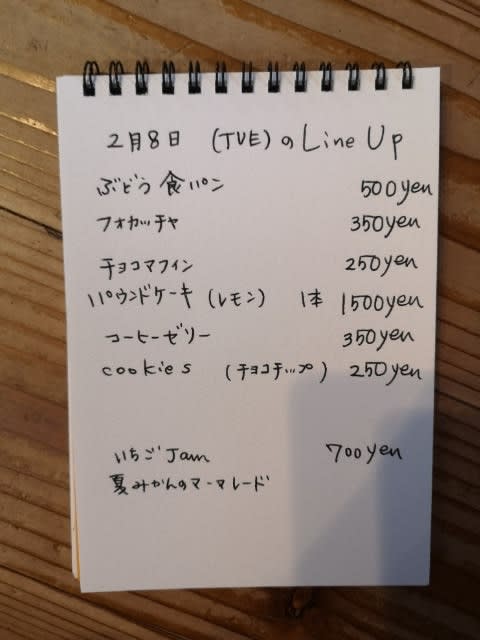 2月8日 (TUE)のLine Up
ぶどう食パン 500yen
フォカッチャ 350yen
チョコマフィン 250yen
パウンドケーキ(レモン) 1本 1500yen
コーヒーゼリー 350yen
cookies (チョコチップ) 250yen
いちごJam 700yen
夏みかんのマーマレード